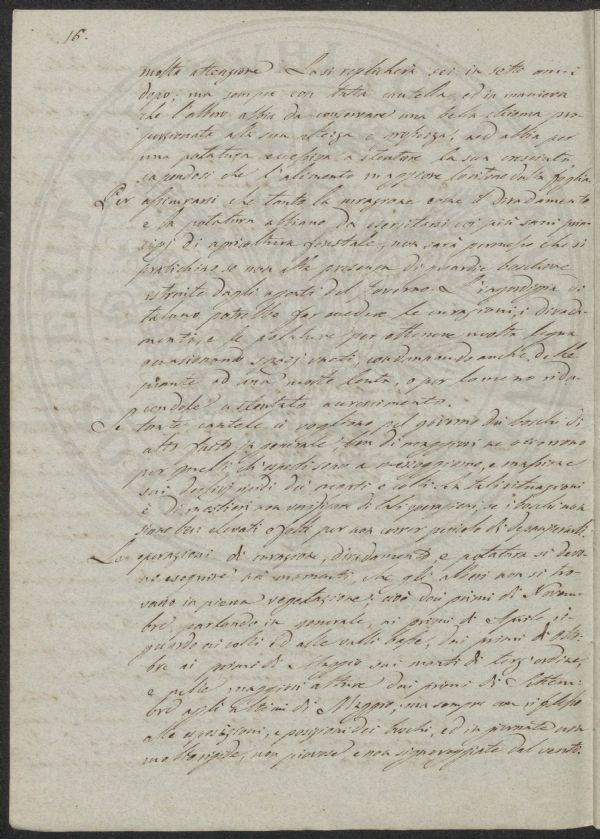 16.
molta attenzione. La si replicherà sei in sette anni
dopo; ma sempre con tutta cautella, ed in maniera
che l'albero abbia da conservare una bella chioma pro-
porzionata alla sua altezza e grossezza, ned abbia per
una potatura eccessiva a stentare la sua crescita
sapendosi che l'alimento maggiore lo ritrae dalla foglia.
Per assicurarsi che tanto la curazione come il diradamento
e la potatura abbiano da eseguirsi coi più sani prin-
cipj di agricoltura forestale, non sarà permesso che si
pratichino se non alla presenza di guardie boschive
istruite dagli agenti del Governo. L'ingordigia di
taluno potrebbe far eccedere le curazioni, i dirada-
menti, e le potature per ottenere molta legna
occasionando spazi vuoti, condannando anche delle
piante ad una morte lenta, o per lo meno ridu-
cendole a stentato accrescimento.
Se tante cautele ci vogliono pel governo dei boschi di
alto fusto in generale, ben di maggiori ne occorrono
per quelli che esposti sono a mezzogiorno, e massime
sui declivi piedi dei monti e colli. In tali situazioni
è di mestieri non verificare di tali operazioni, se i boschi non
sono ben elevati e folti per non correr pericolo di danneggiarli.
Le operazioni di curazione, diradamento, e potatura si devo-
no eseguire nei momenti che gli alberi non si tro-
vano in piena vegetazione; cioè dai primi di Novem-
bre parlando in generale, ai primi di Aprile, ri-
guardo ai colli ed alle valli basse, dai primi di otto-
bre ai primi di Maggio sui monti di terz'ordine,
e nelle maggiori alture dai primi di Settem-
bre agli ultimi di Maggio, ma sempre con riflesso
alle esposizioni, e posizioni dei boschi, ed in giornate non
molto rigide, non piovose e non signoreggiate dal vento.